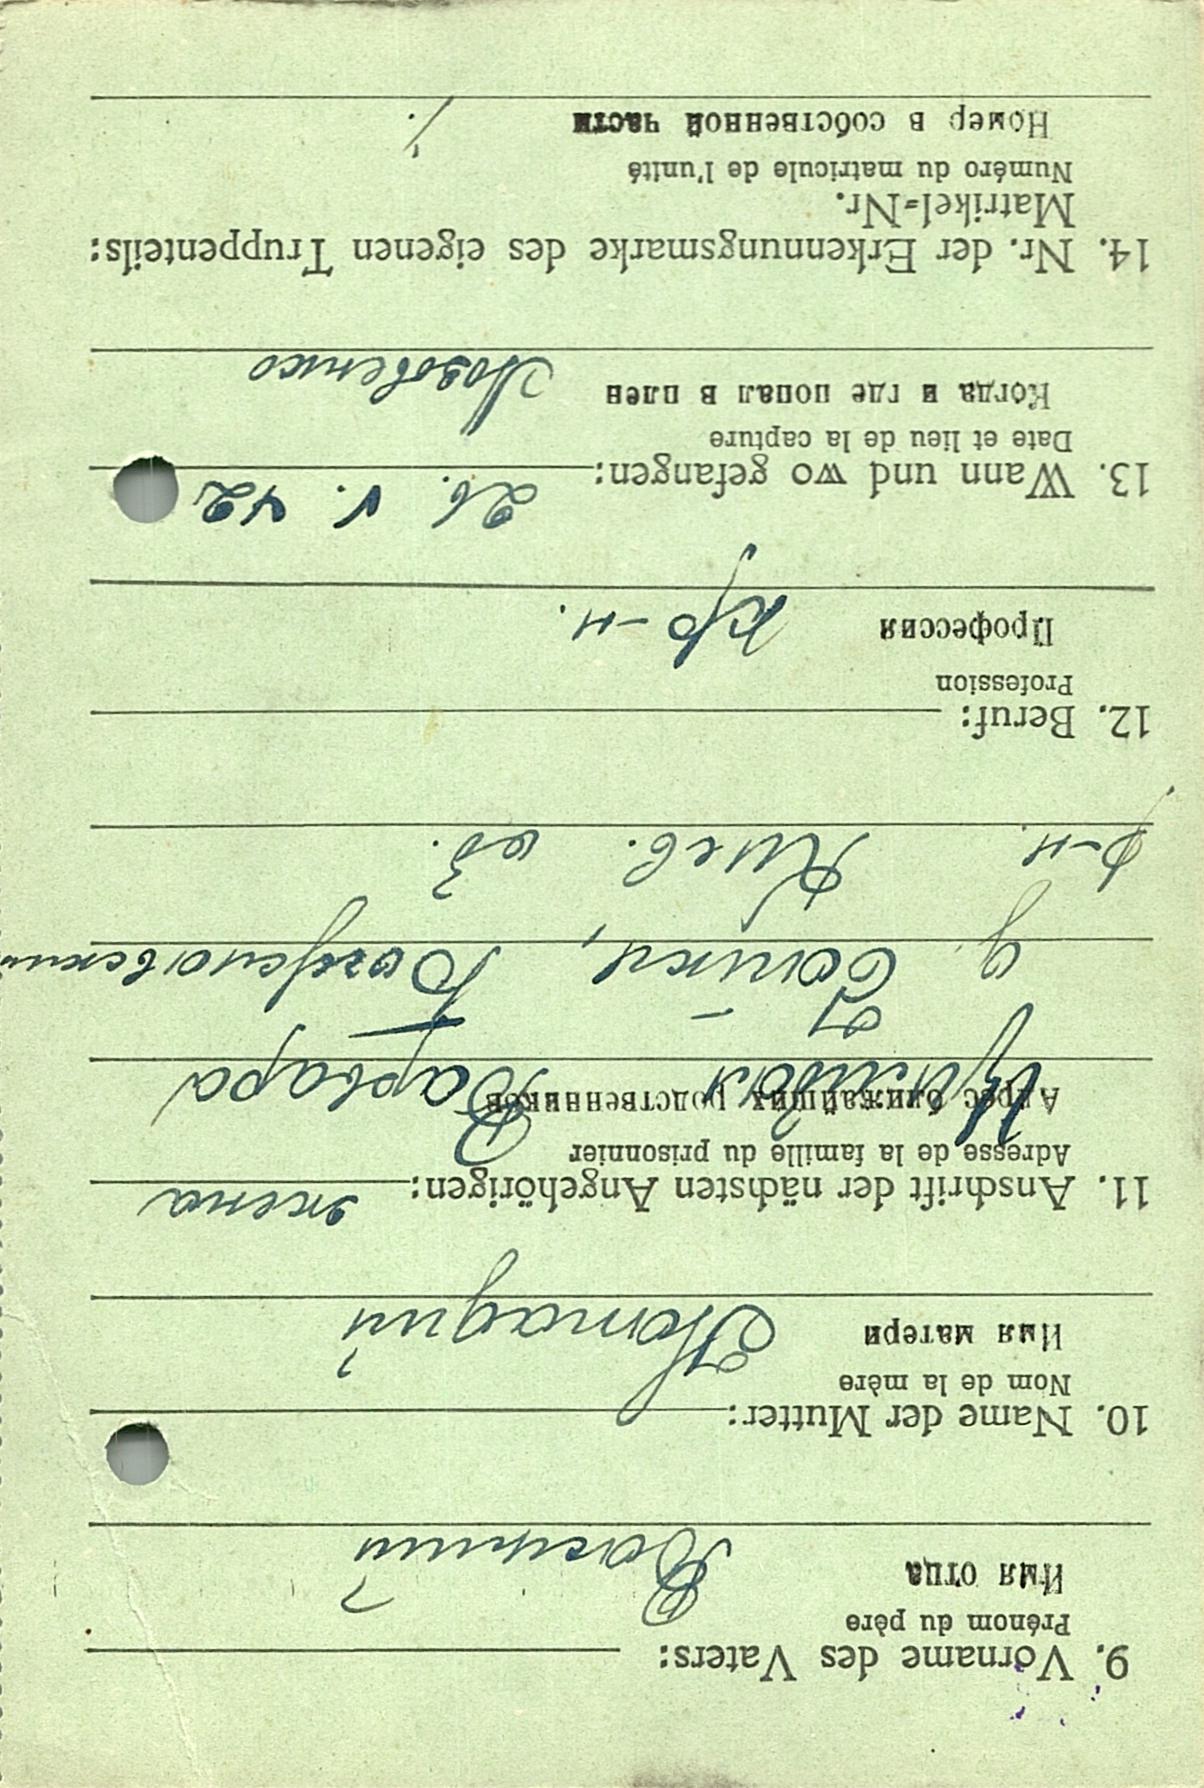 9. Vorname des Vaters:
Prénom du père
Имя отца
10. Name der Mutter:
Nom de la mère
Имя матери
11. Anschrift der nächsten Angehörigen: жена
Adresse de la famille du prisonnier
Адрес ближайших родственников
Варвара
р-н. Киев. об.
12. Beruf:
Profession
Профессия кр-н.
13. Wann und wo gefangen: 26. V. 42
Date et lieu de la capture
Когда и где попал в плен Лозовенко
14. Nr. der Erkennungsmarke des eigenen Truppenteils:
Matrikel=Nr.
Numéro du matricule de l'unité
Номер в собственной части